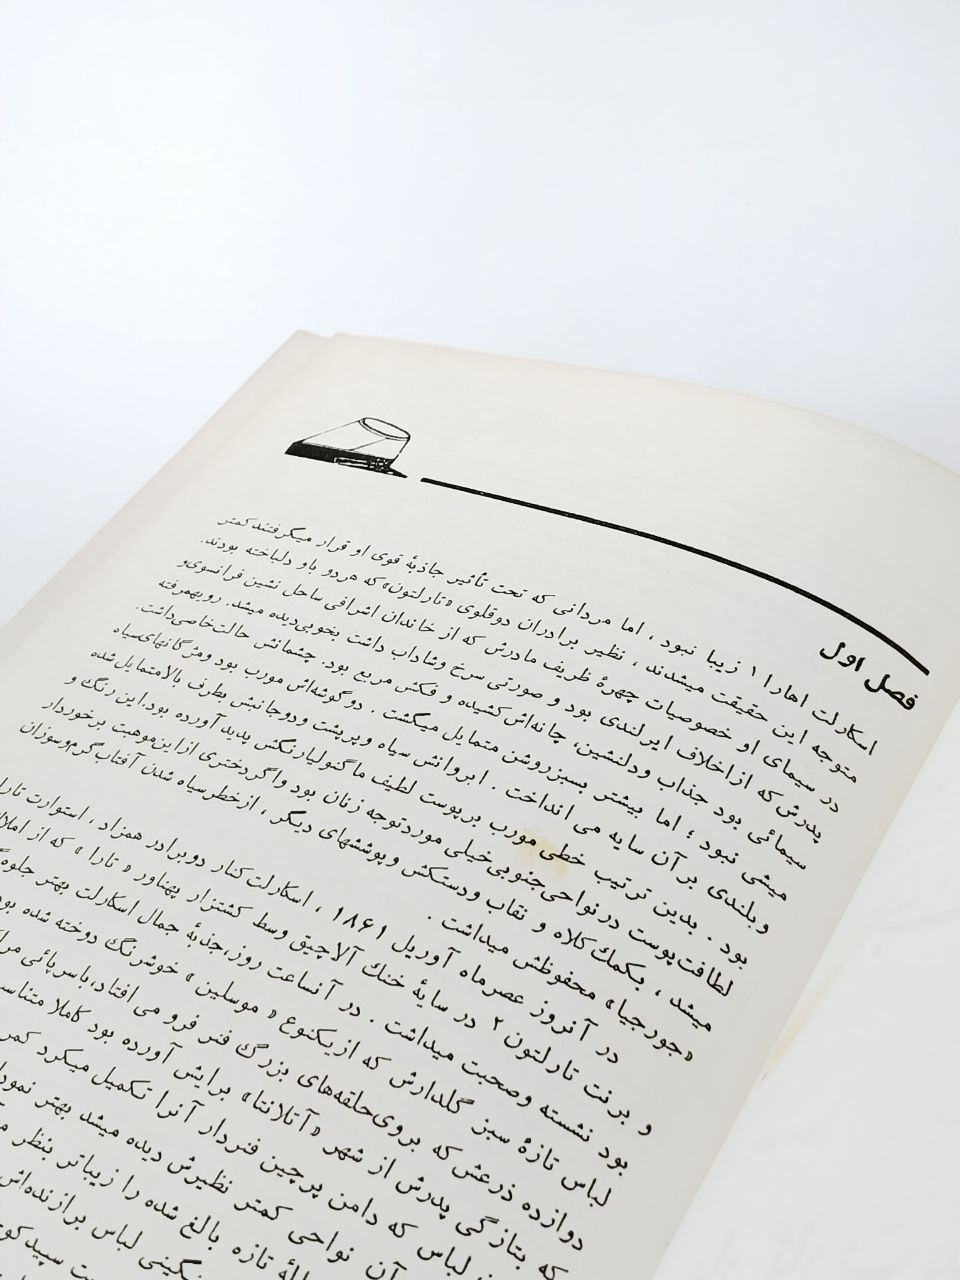 فصل اول
اسکارلت اهارا ۱ زیبا نبود ، اما مردانی که تحت تأثیر جاذبهٔ قوی او قرار میگرفتند کمتر
متوجه این حقیقت میشدند ، نظیر برادران دوقلوی «تارلتون» که هردو باو دلباخته بودند.
در سیمای او خصوصیات چهرهٔ ظریف مادرش که از خاندان اشرافی ساحل نشین فرانسوی و
پدرش که از اخلاف ایرلندی بود و صورتی سرخ وشاداب داشت بخوبی دیده میشد. رویهمرفته
سیمائی بود جذاب ودلنشین، چانه‌اش کشیده و فکش مربع بود. چشمانش حالت خاصی داشت.
میشی نبود ؛ اما بیشتر بسبز روشن متمایل میگشت . دو گوشه‌اش مورب بود ومژگانهای سیاه
وبلندی بر آن سایه می انداخت . ابروانش سیاه وپرپشت ودوجانبش بطرف بالامتمایل شده
بود . بدین ترتیب خطی مورب برپوست لطیف ماگنولیارنگش پدید آورده بود.این رنگ و
لطافت پوست در نواحی جنوبی خیلی موردتوجه زنان بود واگر دختری از این موهبت برخوردار
میشد ، بکمك کلاه و نقاب ودستکش وپوششهای دیگر ، از خطر سیاه شدن آفتاب گرم وسوزان
«جورجیا» محفوظش میداشت .
در آنروز عصرماه آوریل ۱۸۶۱ ، اسکارلت کنار دوبرادر همزاد ، استوارت
و برنت تارلتون ۲ در سایهٔ خنك آلاچیق وسط کشتزار پهناور « تارا » که از
بود نشسته وصحبت میداشت . در آنساعت روز،جذبهٔ جمال اسکارلت بهتر
لباس تازهٔ سبز گلدارش که از یکنوع « موسلین » خوشرنگ دوخته شده
دوازده ذرعش که بروی حلقه‌های بزرگ فنر فرو می افتاد،باسرپائی
که بتازگی پدرش از شهر «آتلانتا» برایش آورده بود کاملا
لباس که دامن پرچین فنردار آنرا تکمیل میکرد
آن نواحی کمتر نظیرش دیده میشد بهتر
تازه بالغ شده را زیباتر بنظر
لباس برازنده‌اش